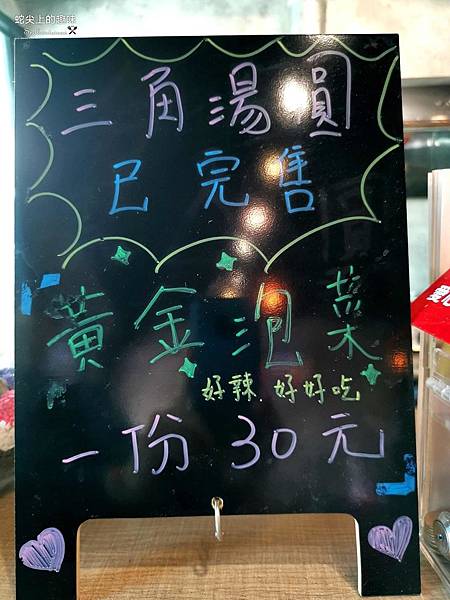 蛇尖上的趣味
三角湯圓
已完售
黃金泡菜
好辣 好好吃
一份 30元